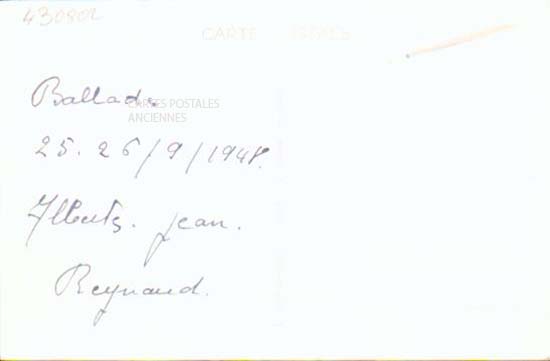 430802
CARTE POSTALE
Ballade.
CARTES POSTALES
ANCIENNES
25. 26/9/1948.
Jean.
Reynaud.